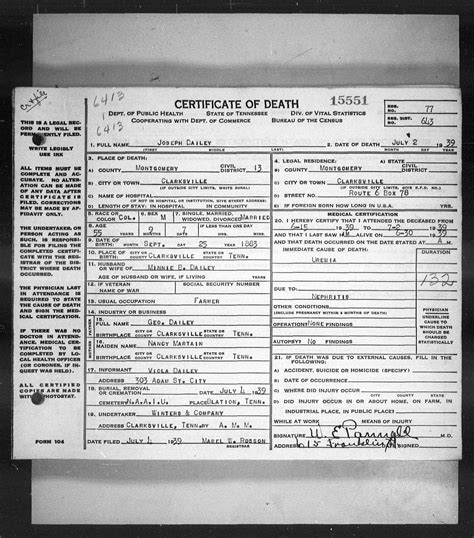 6413
6413
CERTIFICATE OF DEATH
15551
DEPT. OF PUBLIC HEALTH STATE OF TENNESSEE DIV. OF VITAL STATISTICS
COOPERATING WITH DEPT. OF COMMERCE BUREAU OF THE CENSUS
REG. NO. 77
REG. DIST. 643
THIS IS A LEGAL RECORD AND WILL BE PERMANENTLY FILED.
WRITE LEGIBLY
USE INK
ALL ITEMS MUST BE COMPLETE AND ACCURATE. NO ALTERATION CAN BE MADE OF ANY DATA AFTER CERTIFICATE IS FILED. CORRECTIONS MAY BE MADE BY AFFIDAVIT ONLY.
THE UNDERTAKER, OR PERSON ACTING AS SUCH, IS RESPONSIBLE FOR FILING THE COMPLETED CERTIFICATE WITH THE REGISTRAR OF THE DISTRICT WHERE DEATH OCCURRED.
THE PHYSICIAN LAST IN ATTENDANCE IS REQUIRED TO STATE THE CAUSE OF DEATH AND SIGN THE MEDICAL CERTIFICATION.
IF THERE WAS NO DOCTOR IN ATTENDANCE, MEDICAL CERTIFICATION TO BE COMPLETED BY LOCAL HEALTH OFFICER (OR CORONER, IF INQUEST WAS HELD).
ALL CERTIFIED COPIES ARE MADE BY PHOTOSTAT.
FORM 104
1. FULL NAME JOSEPH DAILEY
2. DATE OF DEATH JULY 2 1939
3. PLACE OF DEATH:
A) COUNTY MONTGOMERY CIVIL DISTRICT 13
B) CITY OR TOWN CLARKSVILLE
(IF OUTSIDE CITY LIMITS, WRITE RURAL)
C) NAME OF HOSPITAL OR INSTITUTION
(IF NOT IN HOSPITAL, GIVE STREET ADDRESS)
D) LENGTH OF STAY: IN HOSPITAL IN COMMUNITY
4. LEGAL RESIDENCE:
A) COUNTY MONTGOMERY CIVIL DISTRICT
B) CITY OR TOWN CLARKSVILLE
(IF OUTSIDE CITY LIMITS, GIVE R.F.D. NO.)
C) STREET NO. ROUTE 6 BOX 78
E) IF FOREIGN BORN HOW LONG IN U.S.A.? YRS.
5. RACE OR COLOR COL. 6. SEX M 7. SINGLE, MARRIED, WIDOWED, DIVORCED MARRIED
8. AGE 55 9 7 IF LESS THAN ONE DAY
9. BIRTH SEPT. 25 1883
10. BIRTHPLACE CLARKSVILLE TENN.
11. HUSBAND OR WIFE OF MINNIE B. DAILEY
AGE OF HUSBAND OR WIFE, IF LIVING
12. IF VETERAN NAME OF WAR SOCIAL SECURITY NUMBER
13. USUAL OCCUPATION FARMER
14. INDUSTRY OR BUSINESS
15. FULL NAME GEO. DAILEY
BIRTHPLACE CLARKSVILLE TENN.
16. MAIDEN NAME NANCY MARTAIN
BIRTHPLACE CLARKSVILLE TENN.
17. INFORMANT VIOLA DAILEY
ADDRESS 303 ADAM ST. CITY
18. BURIAL, REMOVAL OR CREMATION DATE JULY 4 1939
CEMETERY PLACE TENN.
19. UNDERTAKER WINTERS & COMPANY
ADDRESS CLARKSVILLE, TENN. BY A. M. M.
DATE FILED JULY 4 1939 MABEL W. ROSSON
REGISTRAR
MEDICAL CERTIFICATION
20. I HEREBY CERTIFY THAT I ATTENDED THE DECEASED
FROM 6-15 1939 TO 7-2 1939
AND THAT I LAST SAW H ALIVE ON 6-30 1939
AND THAT DEATH OCCURRED ON THE DATE STATED AT A. M
IMMEDIATE CAUSE OF DEATH DURATION
UREMIA
132
DUE TO
NEPHRITIS
OTHER CONDITIONS
(INCLUDE PREGNANCY WITHIN 3 MONTHS OF DEATH)
PHYSICIAN UNDERLINE CAUSE TO WHICH DEATH SHOULD BE CHARGED STATISTICALLY
OPERATION? NONE FINDINGS
AUTOPSY? NO FINDINGS
21. IF DEATH WAS DUE TO EXTERNAL CAUSES, FILL IN THE FOLLOWING:
A) ACCIDENT, SUICIDE OR HOMICIDE
B) DATE OF OCCURRENCE
C) WHERE DID INJURY OCCUR
D) DID INJURY OCCUR IN OR ABOUT HOME, ON FARM, IN INDUSTRIAL PLACE, IN PUBLIC PLACE?
WHILE AT WORK MEANS OF INJURY
SIGNATURE W. E.
ADDRESS 615 Franklin St